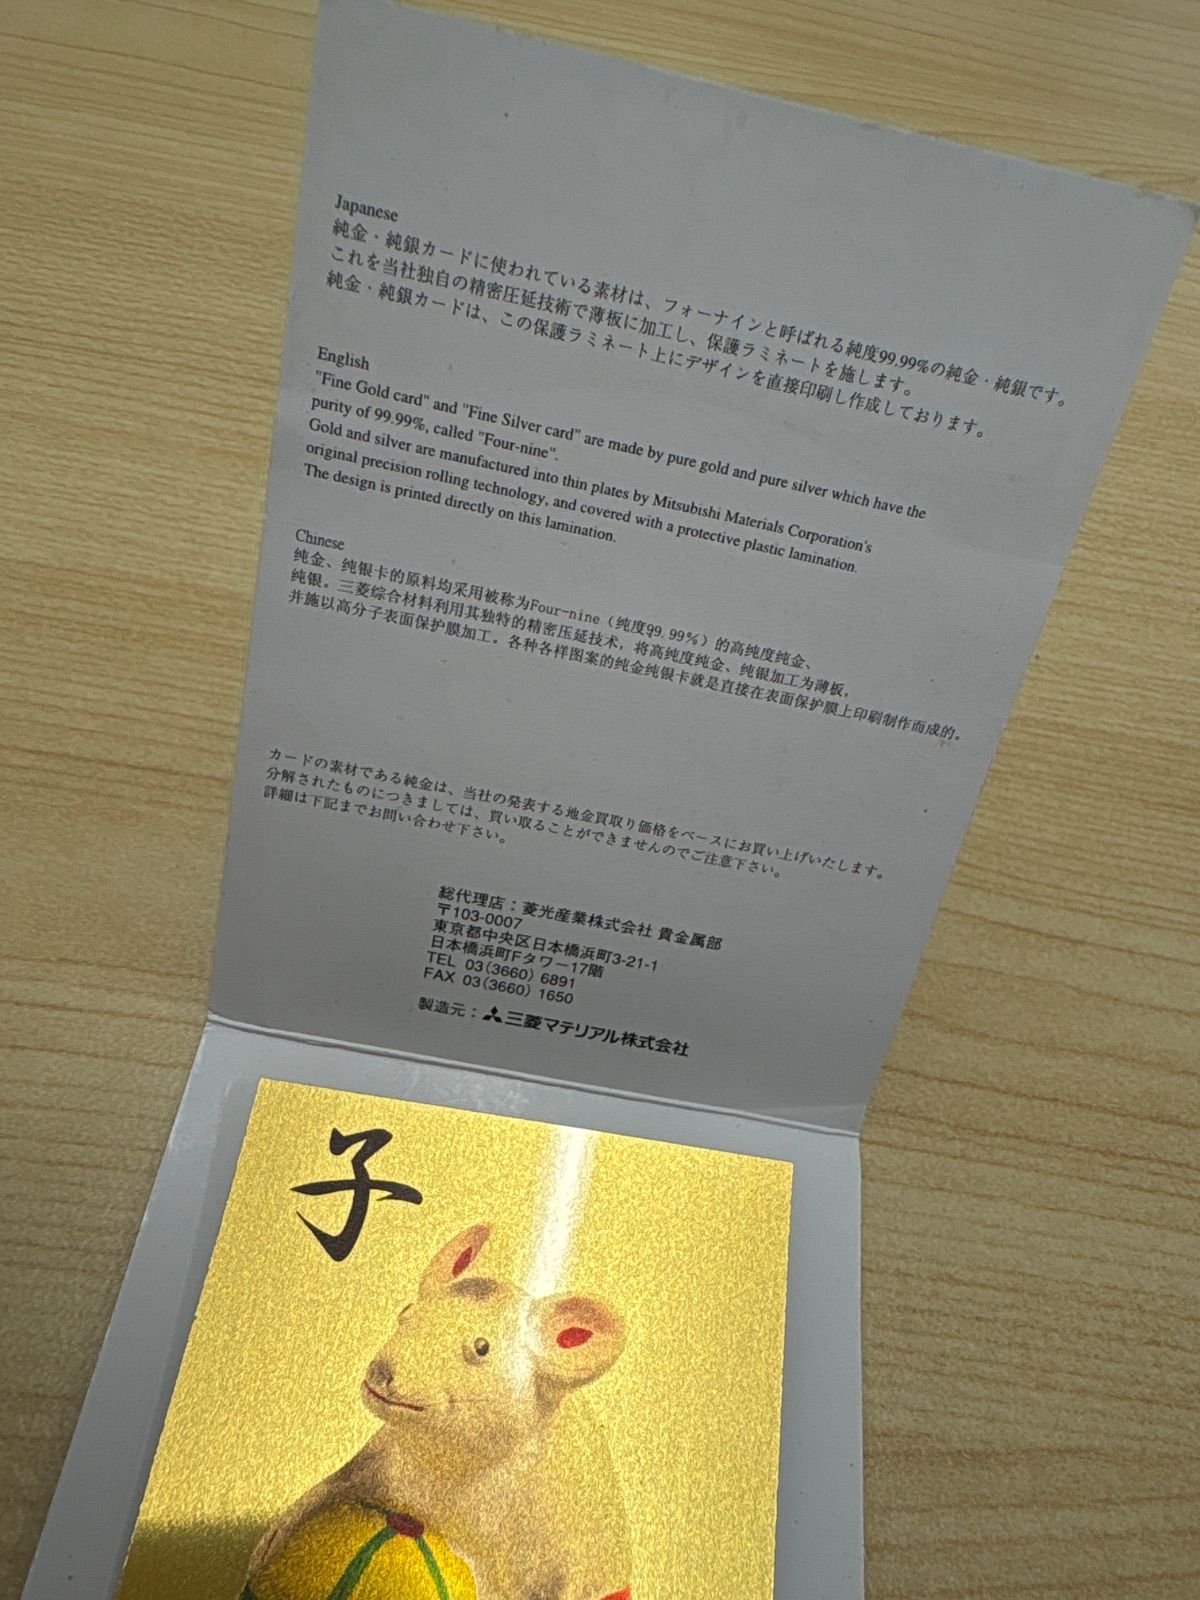 Japanese
純金・純銀カードに使われている素材は、フォーナインと呼ばれる純度99.99%の純金・純銀です。
これを当社独自の精密圧延技術で薄板に加工し、保護ラミネートを施します。
純金・純銀カードは、この保護ラミネート上にデザインを直接印刷し作成しております。
English
"Fine Gold card" and "Fine Silver card" are made by pure gold and pure silver which have the
purity of 99.99%, called "Four-nine".
Gold and silver are manufactured into thin plates by Mitsubishi Materials Corporation's
original precision rolling technology, and covered with a protective plastic lamination.
The design is printed directly on this lamination.
Chinese
纯金、纯银卡的原料均采用被称为Four-nine（纯度99.99%）的高纯度纯金、
纯银。三菱综合材料利用其独特的精密压延技术，将高纯度纯金、纯银加工为薄板，
并施以高分子表面保护膜加工。各种各样图案的纯金纯银卡就是直接在表面保护膜上印刷制作而成的。
カードの素材である純金は、当社の発表する地金買取り価格をベースにお買い上げいたします。
分解されたものにつきましては、買い取ることができませんのでご注意下さい。
詳細は下記までお問い合わせ下さい。
総代理店：菱光産業株式会社 貴金属部
〒103-0007
東京都中央区日本橋浜町3-21-1
日本橋浜町Fタワー17階
TEL 03(3660) 6891
FAX 03(3660) 1650
製造元：三菱マテリアル株式会社
子